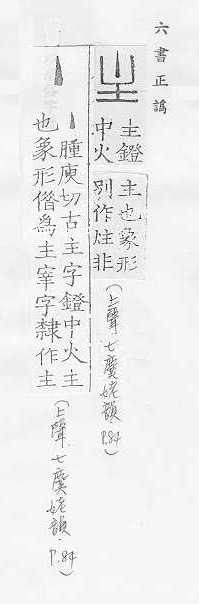 六書正譌
主鐙
中火
主也象形
別作炷非
(上聲七麌姥韻 P.84)
丶腫庾切古主字鐙中火主
也象形借為主宰字隸作主
(上聲七麌姥韻 P.84)